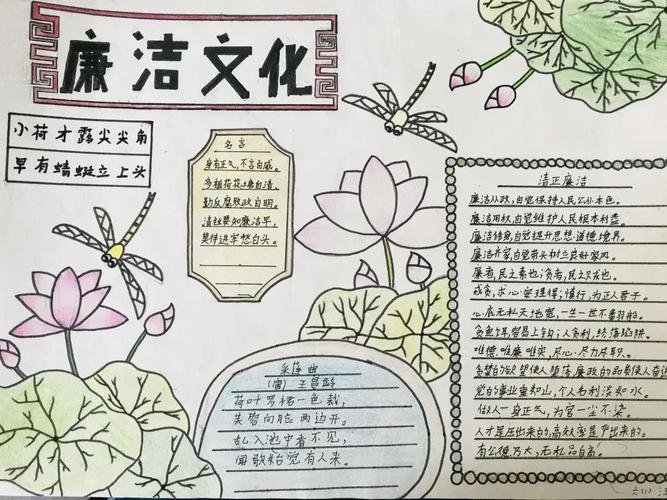 廉洁文化
小荷才露尖尖角
早有蜻蜓立上头
名言
身有正气,不言自威。
多植荷花塘自清,
勤反腐败政自明。
清社要知廉洁早,
莫待进牢愁白头。
采莲曲
(唐) 王昌龄
荷叶罗裙一色裁,
芙蓉向脸两边开。
乱入池中看不见,
闻歌始觉有人来。
清正廉洁
廉洁从政,自觉保持人民公仆本色。
廉洁用权,自觉维护人民根本利益。
廉洁修身,自觉提升思想道德境界。
廉洁齐家,自觉带头树立良好家风。
廉者,民之表也;贪者,民之贼也。
戒贪,求心安理得;慎行,为正人君子。
心底无私天地宽,一生一世不翻船。
贪鱼饵,容易上钩;人贪利,终落陷阱。
唯德、唯廉、唯实,尽心、尽力、尽职。
贪婪的欲望使人堕落,廉政的品质使人奋进
党的事业重如山,个人名利淡如水。
做人一身正气,为官一尘不染。
人才是压出来的,高效率是严出来的。
有公德乃大,无私品自高。